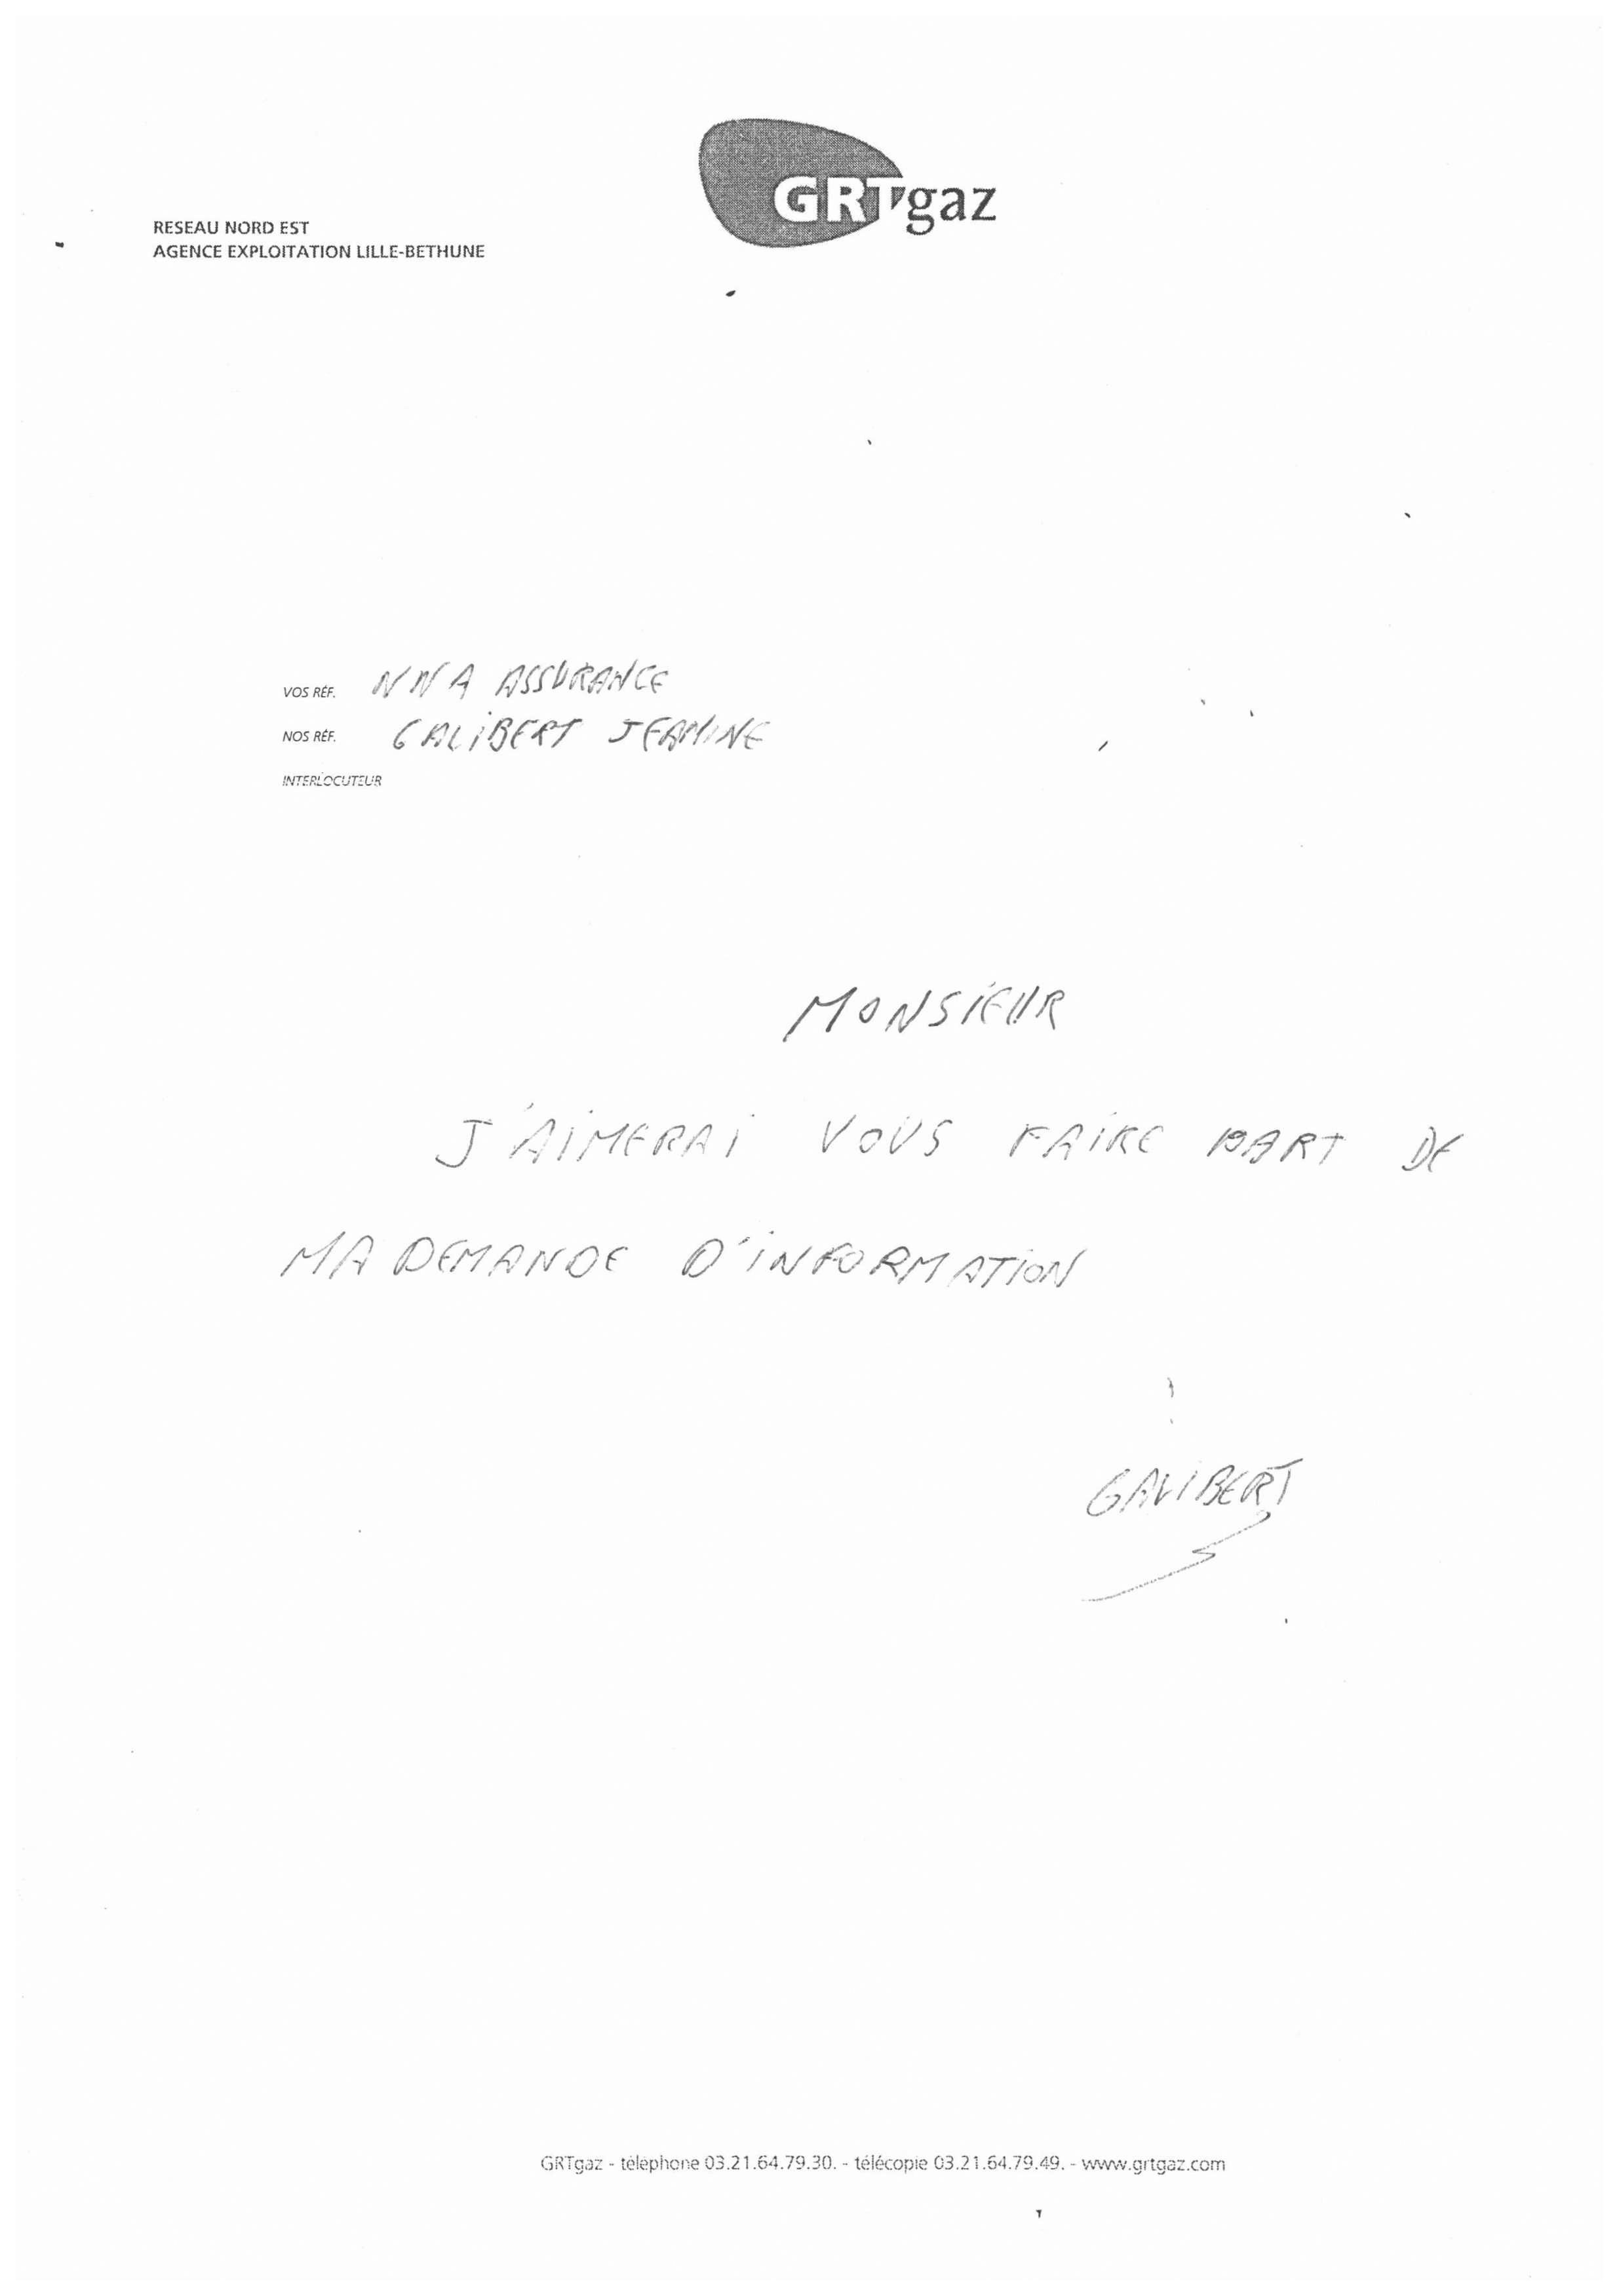 GRTgaz
RESEAU NORD EST
AGENCE EXPLOITATION LILLE-BETHUNE
VOS RÉF. NNA ASSURANCE
NOS RÉF. GALIBERT JEANINE
INTERLOCUTEUR
MONSIEUR
J'AIMERAI VOUS FAIRE PART DE
MA DEMANDE D'INFORMATION
GALIBERT
GRTgaz - téléphone 03.21.64.79.30. - télécopie 03.21.64.79.49. - www.grtgaz.com